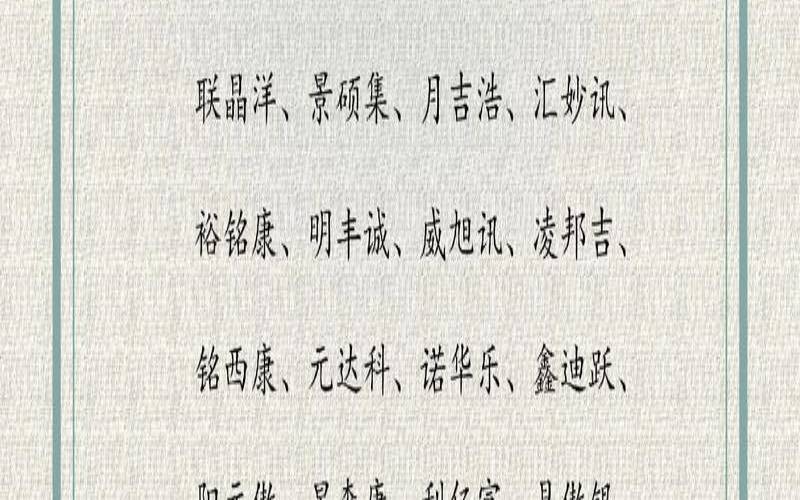 联晶洋、景硕集、月吉浩、汇妙讯、
裕铭康、明丰诚、威旭讯、凌邦吉、
铭西康、元达科、诺华乐、鑫迪跃、